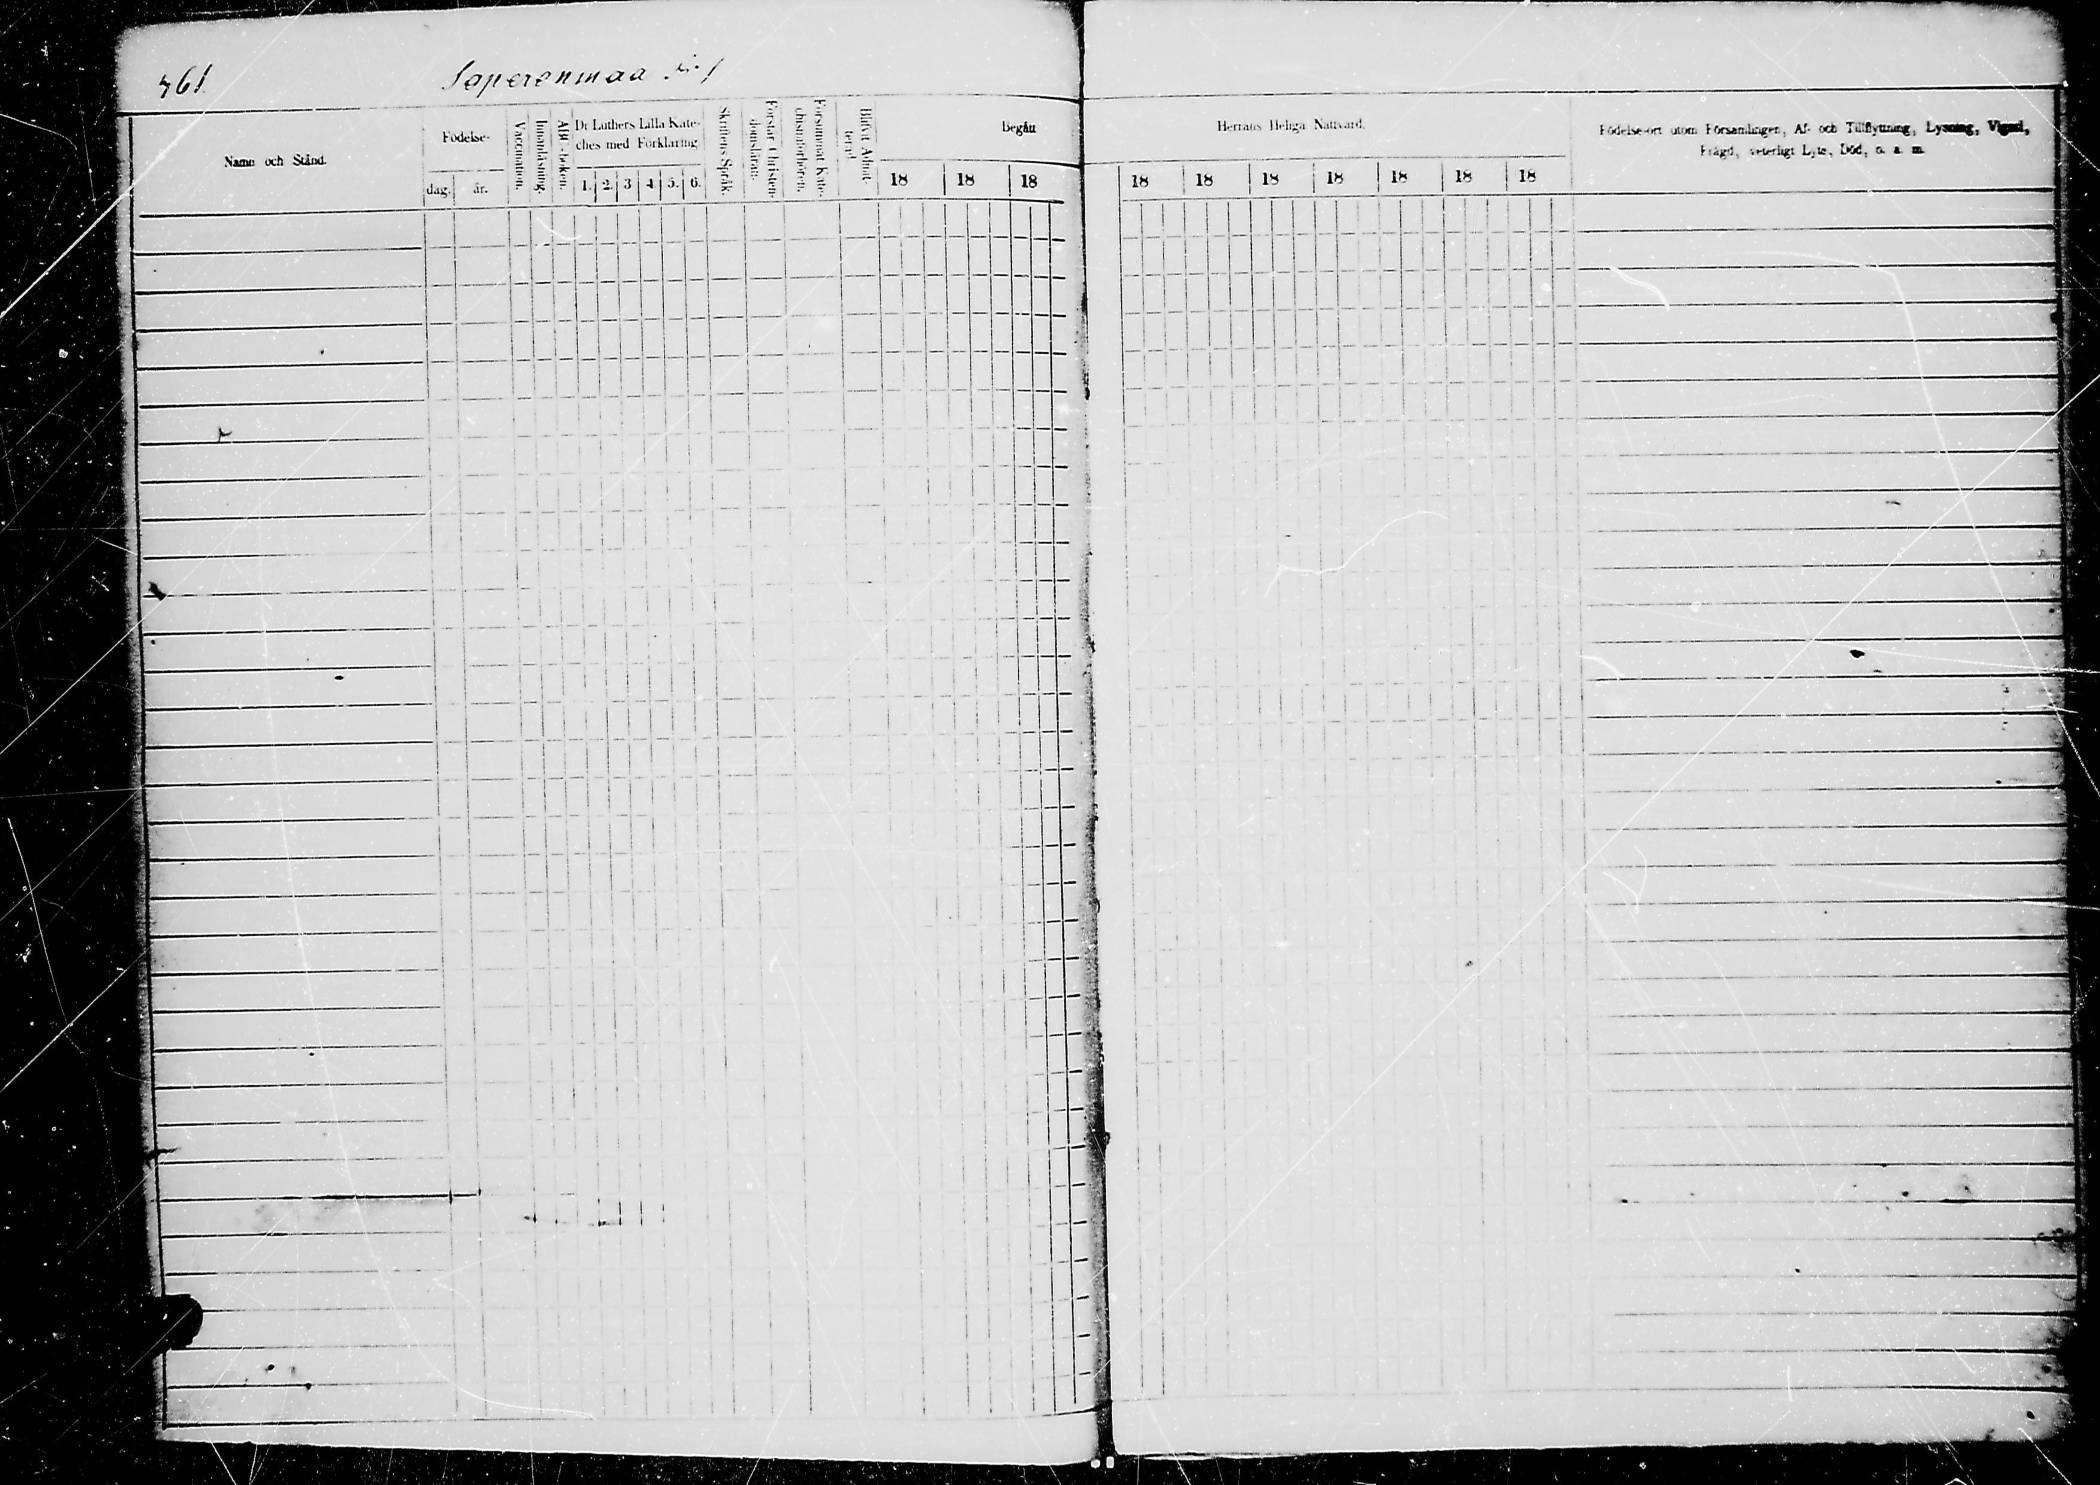 761. Saperenmaa No 1
Namn och Stånd.
Födelse-
dag.
år.
Vaccination.
Innanläsning.
ABC-boken.
Dr Luthers Lilla Kate-
ches med Förklaring
1. 2. 3 4 5. 6.
Skriftens Språk.
Förstår Christen-
domsläran.
Försummat Kate-
chismiförhören.
Blifvit Admit-
terad.
Begått
18 18 18
Herrans Heliga Nattvard.
18 18 18 18 18 18 18
Födelse-ort utom Församlingen, Af- och Tillflyttning, Lysning, Vigsel,
Frägd, veterligt Lyte, Död, o. s. m.